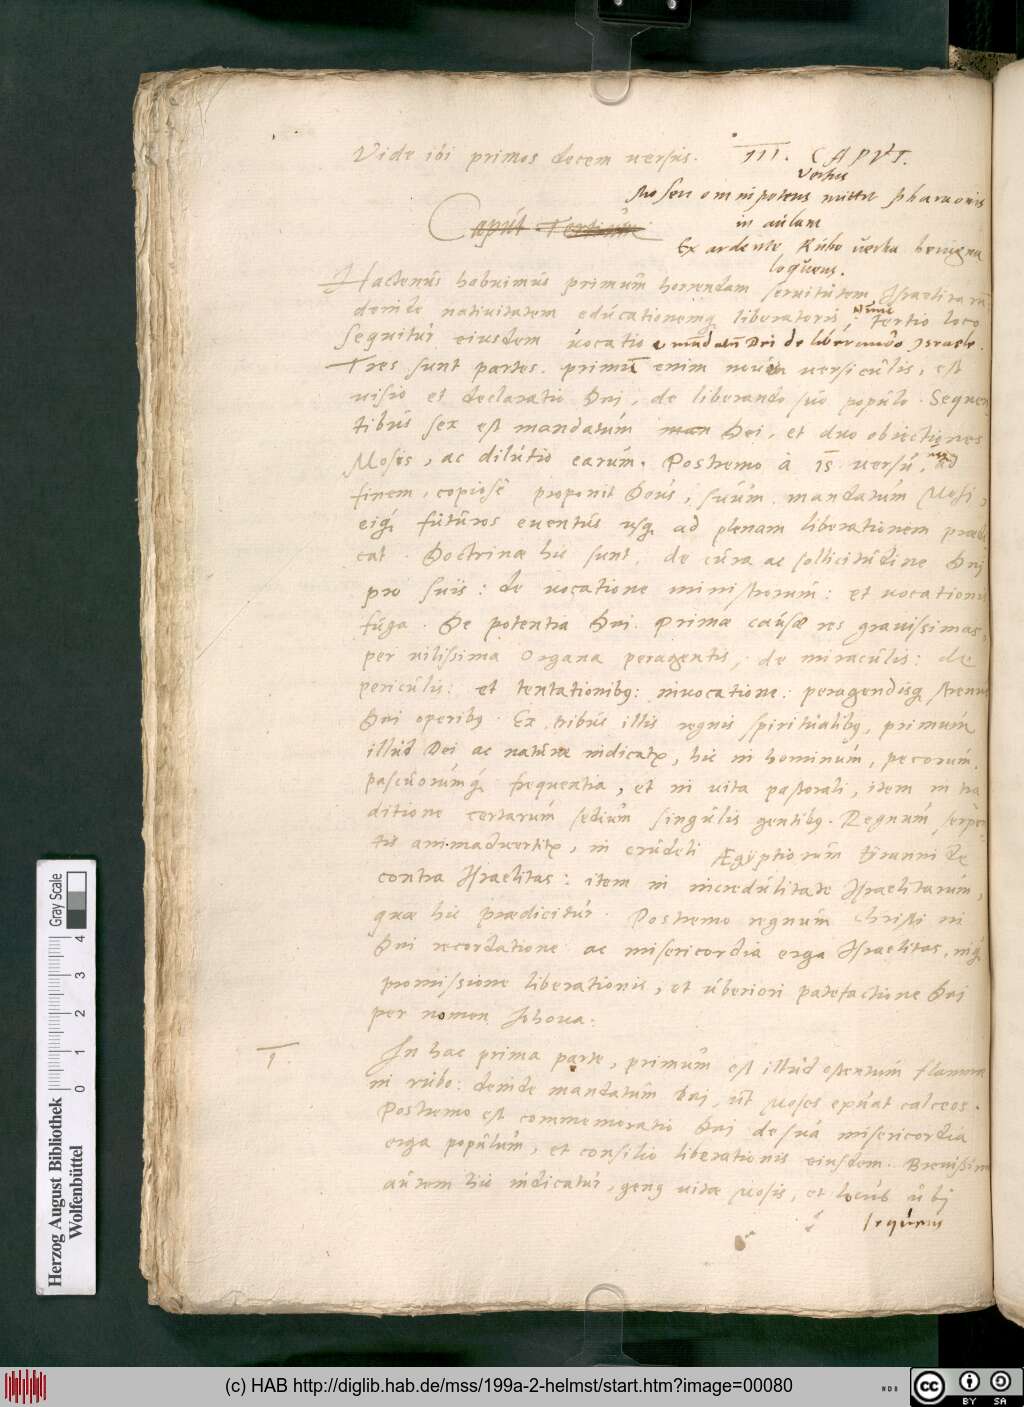 Vide ibi primos decem versus. III. CAPVT.
versus
Mosen omnipotens mittit Pharaonis
in aulam
Caput Tertium
Ex ardente Rubo verba benigna
loquens.
Hactenus habuimus primum horrendam servitutem Israelitarū
deinde nativitatem educationemq liberatoris, Nunc tertio loco
sequitur eiusdem vocatio mandatū Dei de liberando Israele.
Tres sunt partes. primū enim novem versiculis, est
visio et declaratio Dni, de liberando suo populo. Sequen
tibus sex est mandatum man Dei, et duo obiectiones
Mosis, ac dilutio earum. Postremo à 15 versu, ad
finem, copiosè proponit Deus, suum mandatum Mosi,
eiq, futuros eventus usq ad plenam liberationem prædi
cat. Doctrinæ hic sunt, de cura ac sollicitudine Dni
pro suis: de vocatione ministrorum: et vocationis
fuga. De potentia Dni Primæ causæ res gravissimas,
per vilissima Organa peragentis, de miraculis: de
periculis: et tentationibq: invocatione: peragendisq strenue
Dni operibq. Ex tribus illis regnis spiritualibq, primum
illud Dei ac naturæ indicatr, hic in hominum, pecorum,
pascuorumq frequentia, et in vita pastorali, item in tra
ditione certarum sedium singulis gentibq. Regnum serpen
tis animadvertitr, in crudeli Ægyptiorum tyrannide
contra Israelitas: item in incredulitate Israelitarum,
quæ hic prædicitur. Postremo regnum christi in
Dni recordatione ac misericordia erga Israelitas, inq
promissione liberationis, et uberiori patefactione Dei
per nomen Iehova.
1. In hac prima parte, primum est illud ostentum flammæ
in rubo: deinde mandatum Dei, ut Moses exuat calceos.
Postremo est commemoratio Dni de sua misericordia
erga populum, et consilio liberationis eiusdem. Brevissime
autem hic indicatur, genq vitæ Mosis, et locus ubi